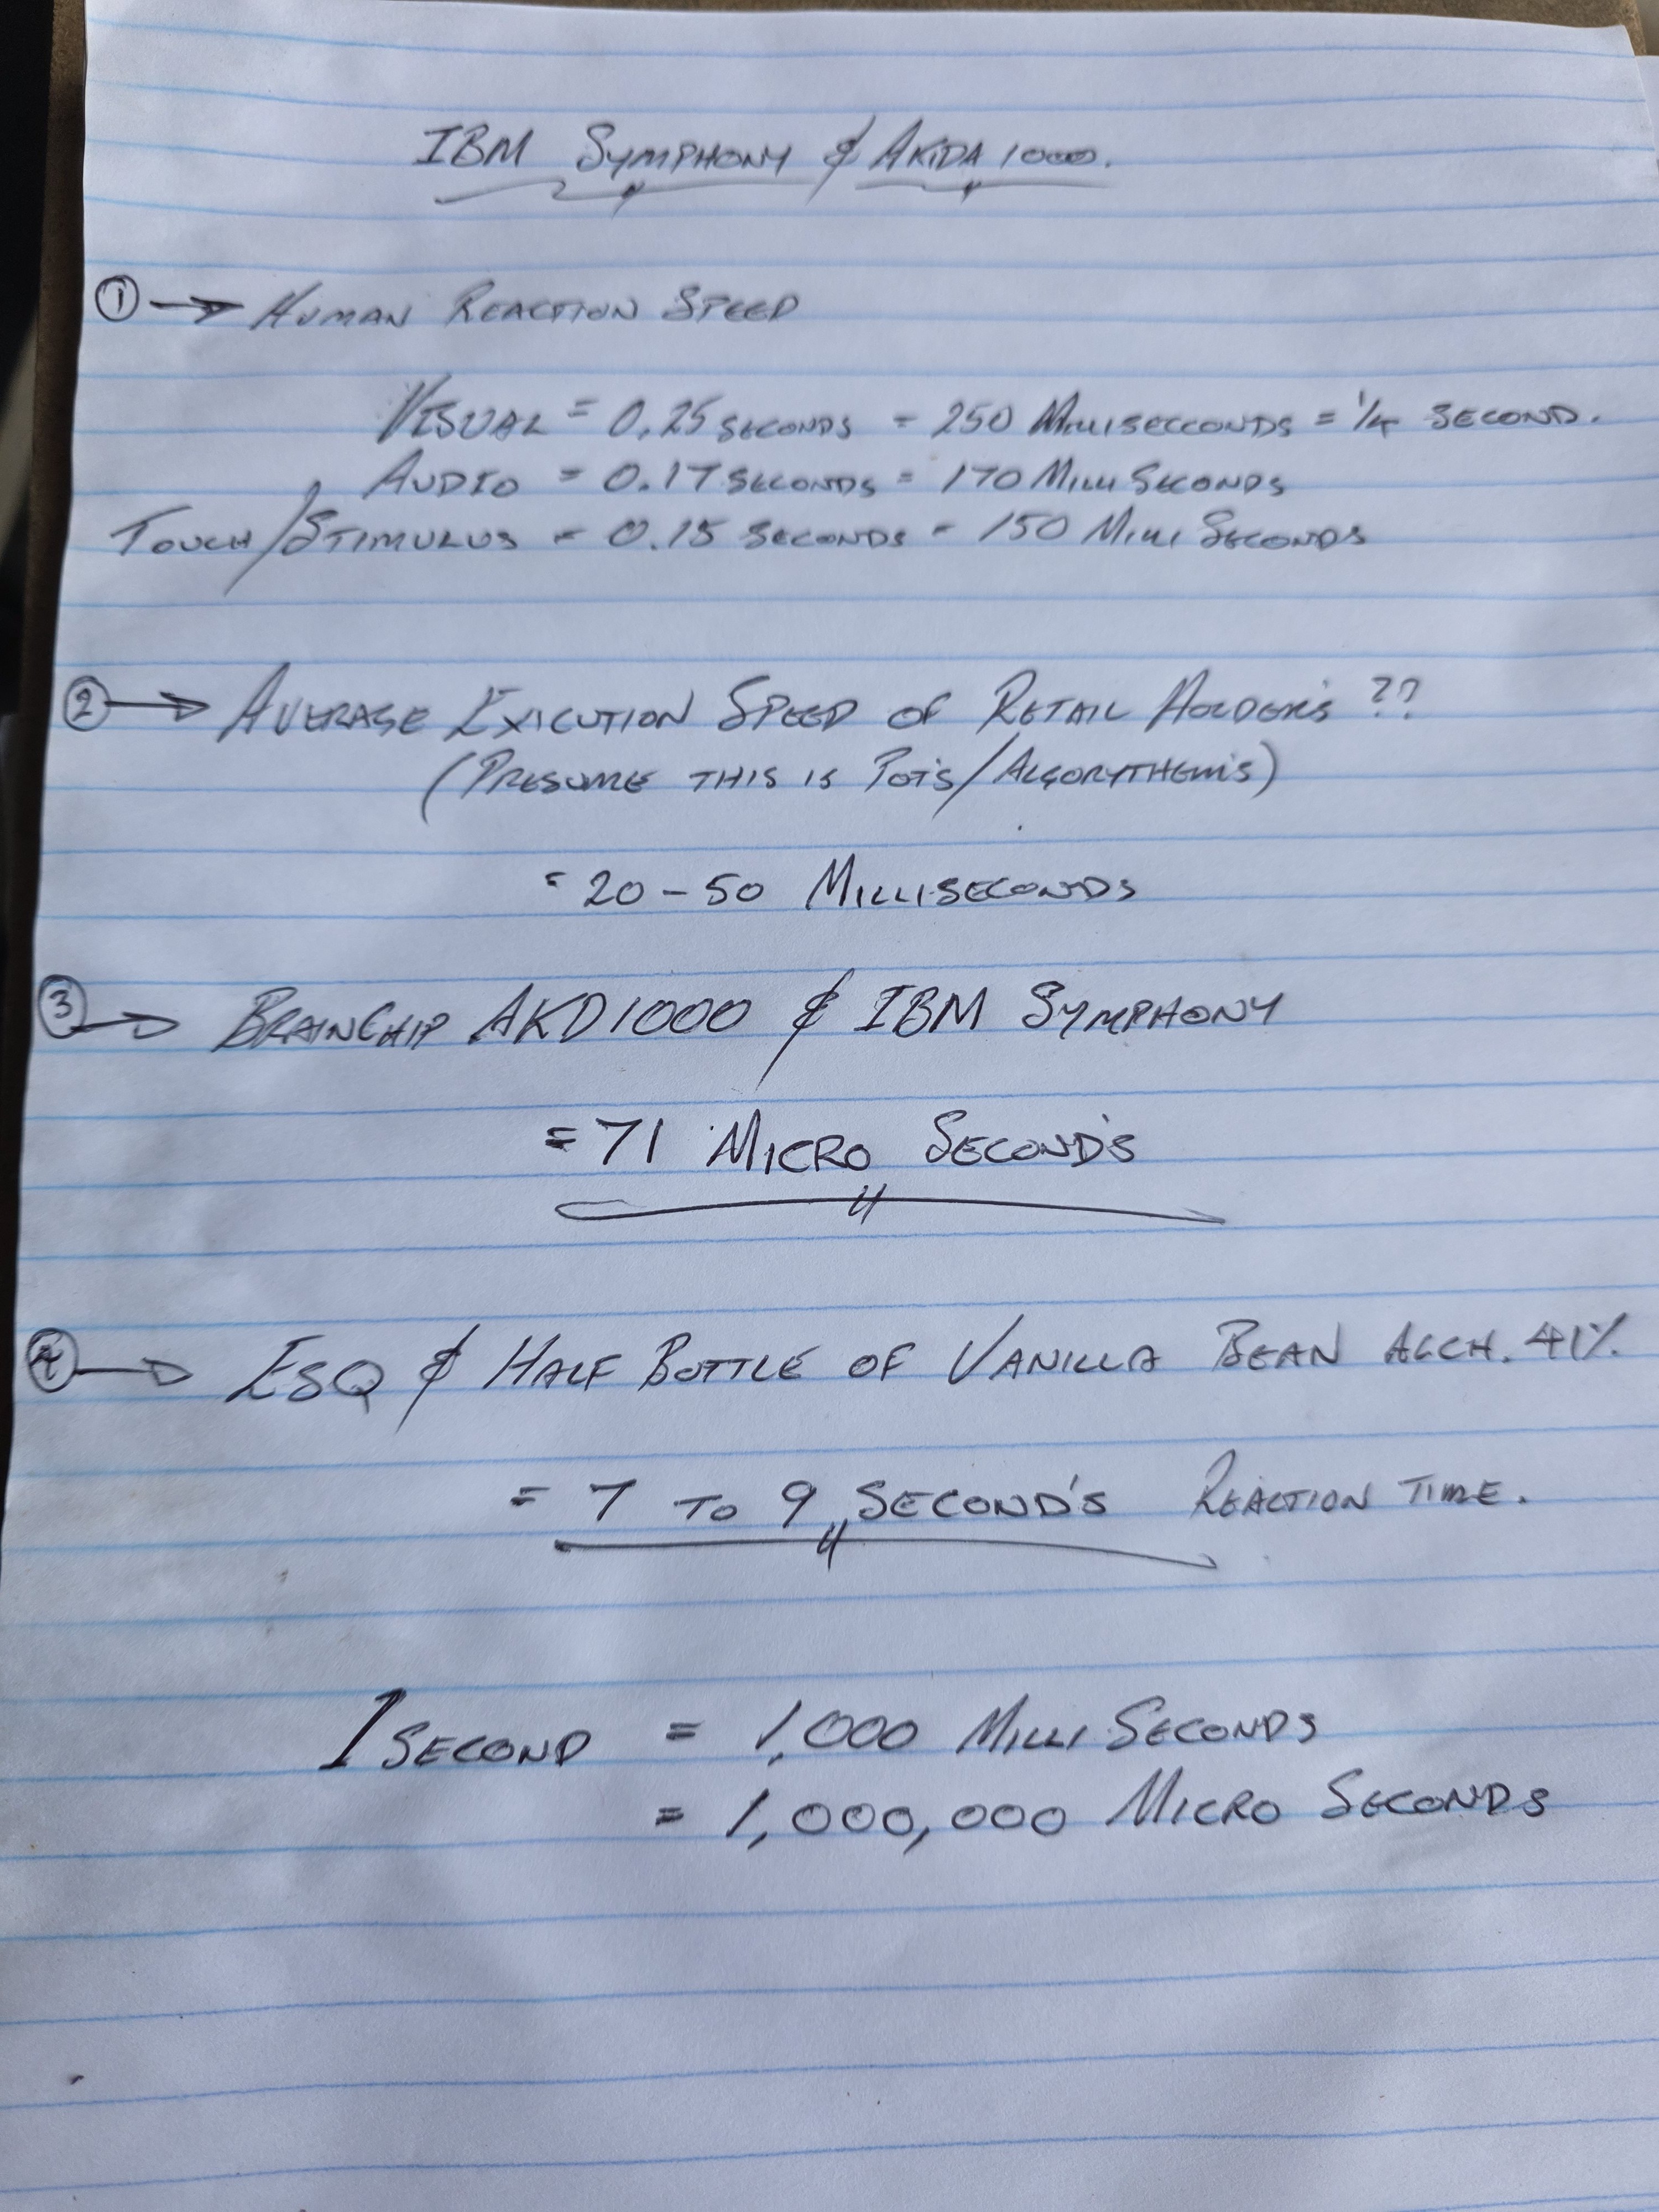 IBM SYMPHONY & AKIDA 1000.
① → HUMAN REACTION SPEED
VISUAL = 0.25 SECONDS = 250 MILLISECCONDS = 1/4 SECOND.
AUDIO = 0.17 SECONDS = 170 MILLI SECONDS
TOUCH/STIMULUS = 0.15 SECONDS = 150 MILLI SECONDS
② → AVERAGE EXICUTION SPEED OF RETAIL HOLDER'S ??
(PRESUME THIS IS BOT'S/ALGORYTHEM'S)
= 20 - 50 MILLISECONDS
③ → BRAINCHIP AKD1000 & IBM SYMPHONY
= 71 MICRO SECOND'S
④ → ESQ & HALF BOTTLE OF VANILLA BEAN ALCH. 41%
= 7 TO 9 SECOND'S REACTION TIME.
1 SECOND = 1,000 MILLI SECONDS
= 1,000,000 MICRO SECONDS